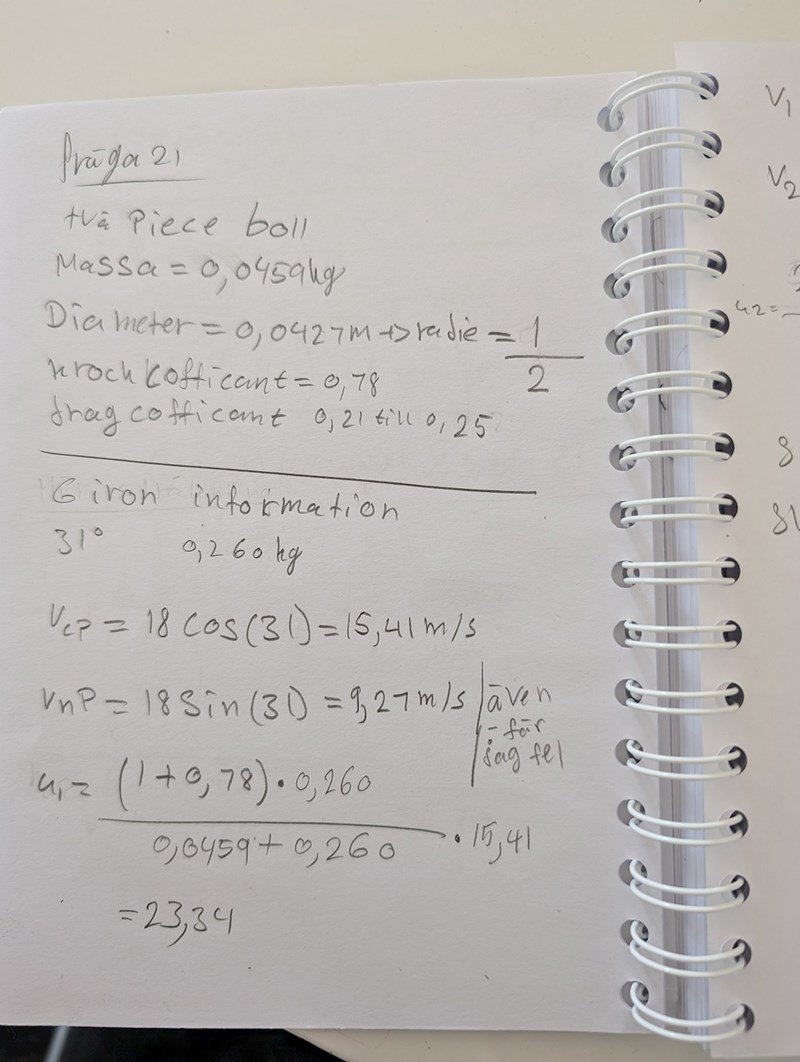 Fråga 21
två Piece boll
Massa = 0,0459kg
Diameter = 0,0427m → radie = 1/2
krock kofficant = 0,78
drag cofficant 0,21 till 0,25
6 iron information
31° 0,260kg
Vcp = 18 cos(31) = 15,41 m/s
VnP = 18 Sin(31) = 9,27 m/s även
för
u1 = (1+0,78)•0,260 / 0,0459+0,260 • 15,41
= 23,34
V1
V2
u2 =